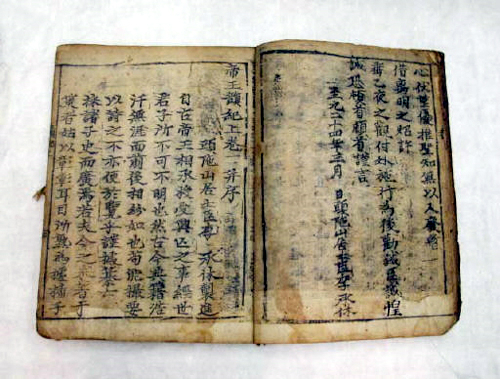 心伏望優推聖知無以人廢
借离明之炤許
乙夜之觀付外施行為後勸誡臣惶
誠恐頓首頓首謹言
至元二十四年三月 日頭陁山居士臣李承休
帝王韻紀上卷并序
頭陁山居士臣李承休製進
自古帝王相承授受興亡之事經世
君子所不可不明也然古今典籍浩
汗無涯而前後相紛如也苟能撮要
以詩之不亦便於覽乎謹據
採諸子史而廣焉若夫今之未著方
策者姑以彰彰耳目所熟為據播于